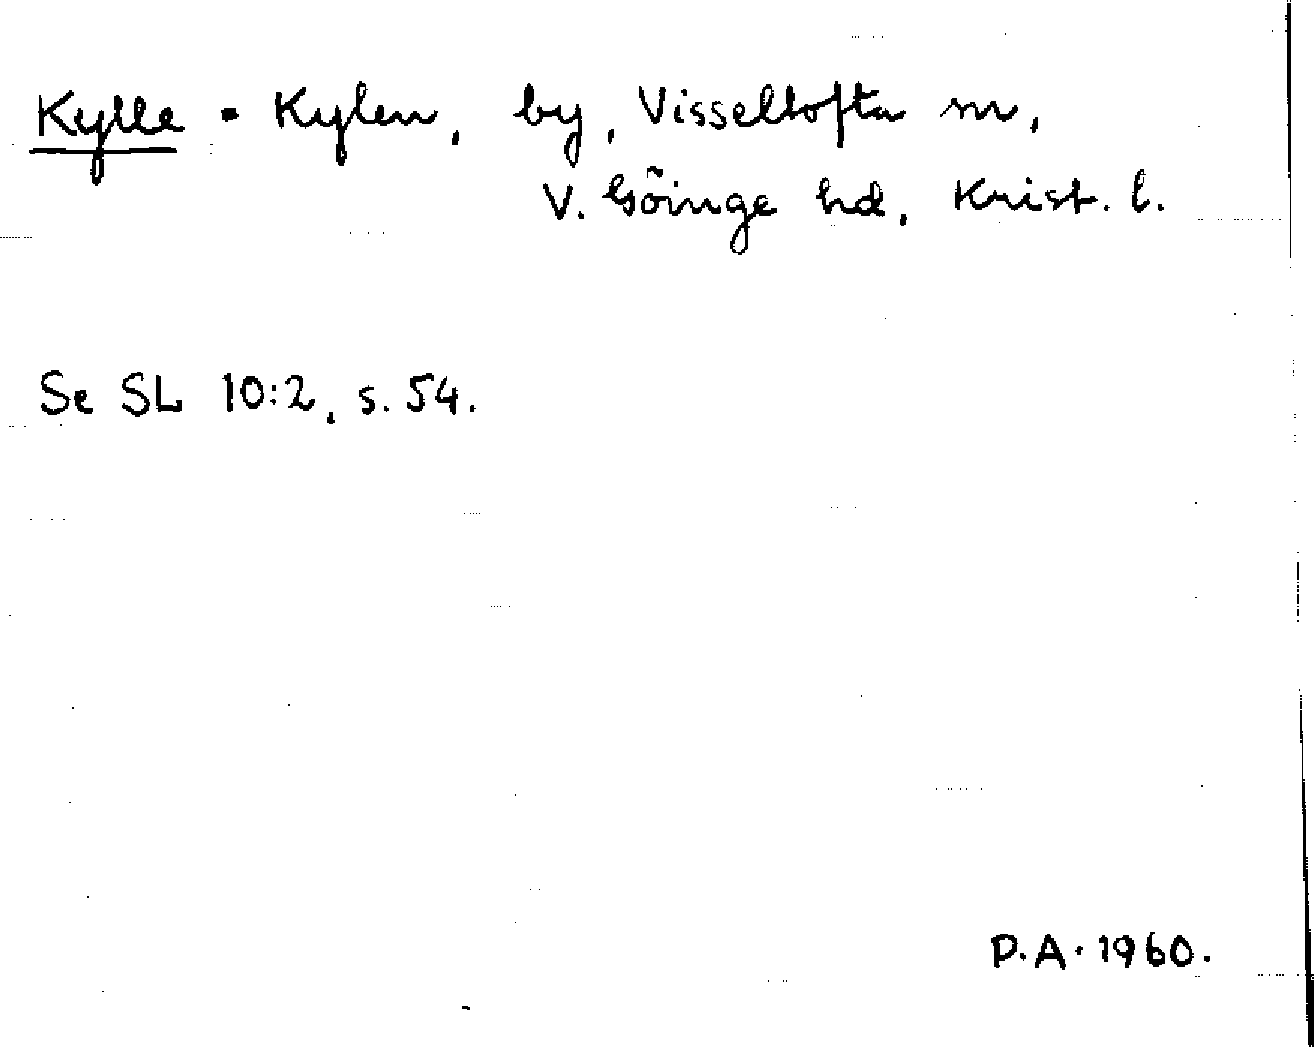 Kylle = Kylen, by, Visseltofta sn,
V. Göinge hd, Krist. l.
Se SL 10:2, s. 54.
P.A. 1960.